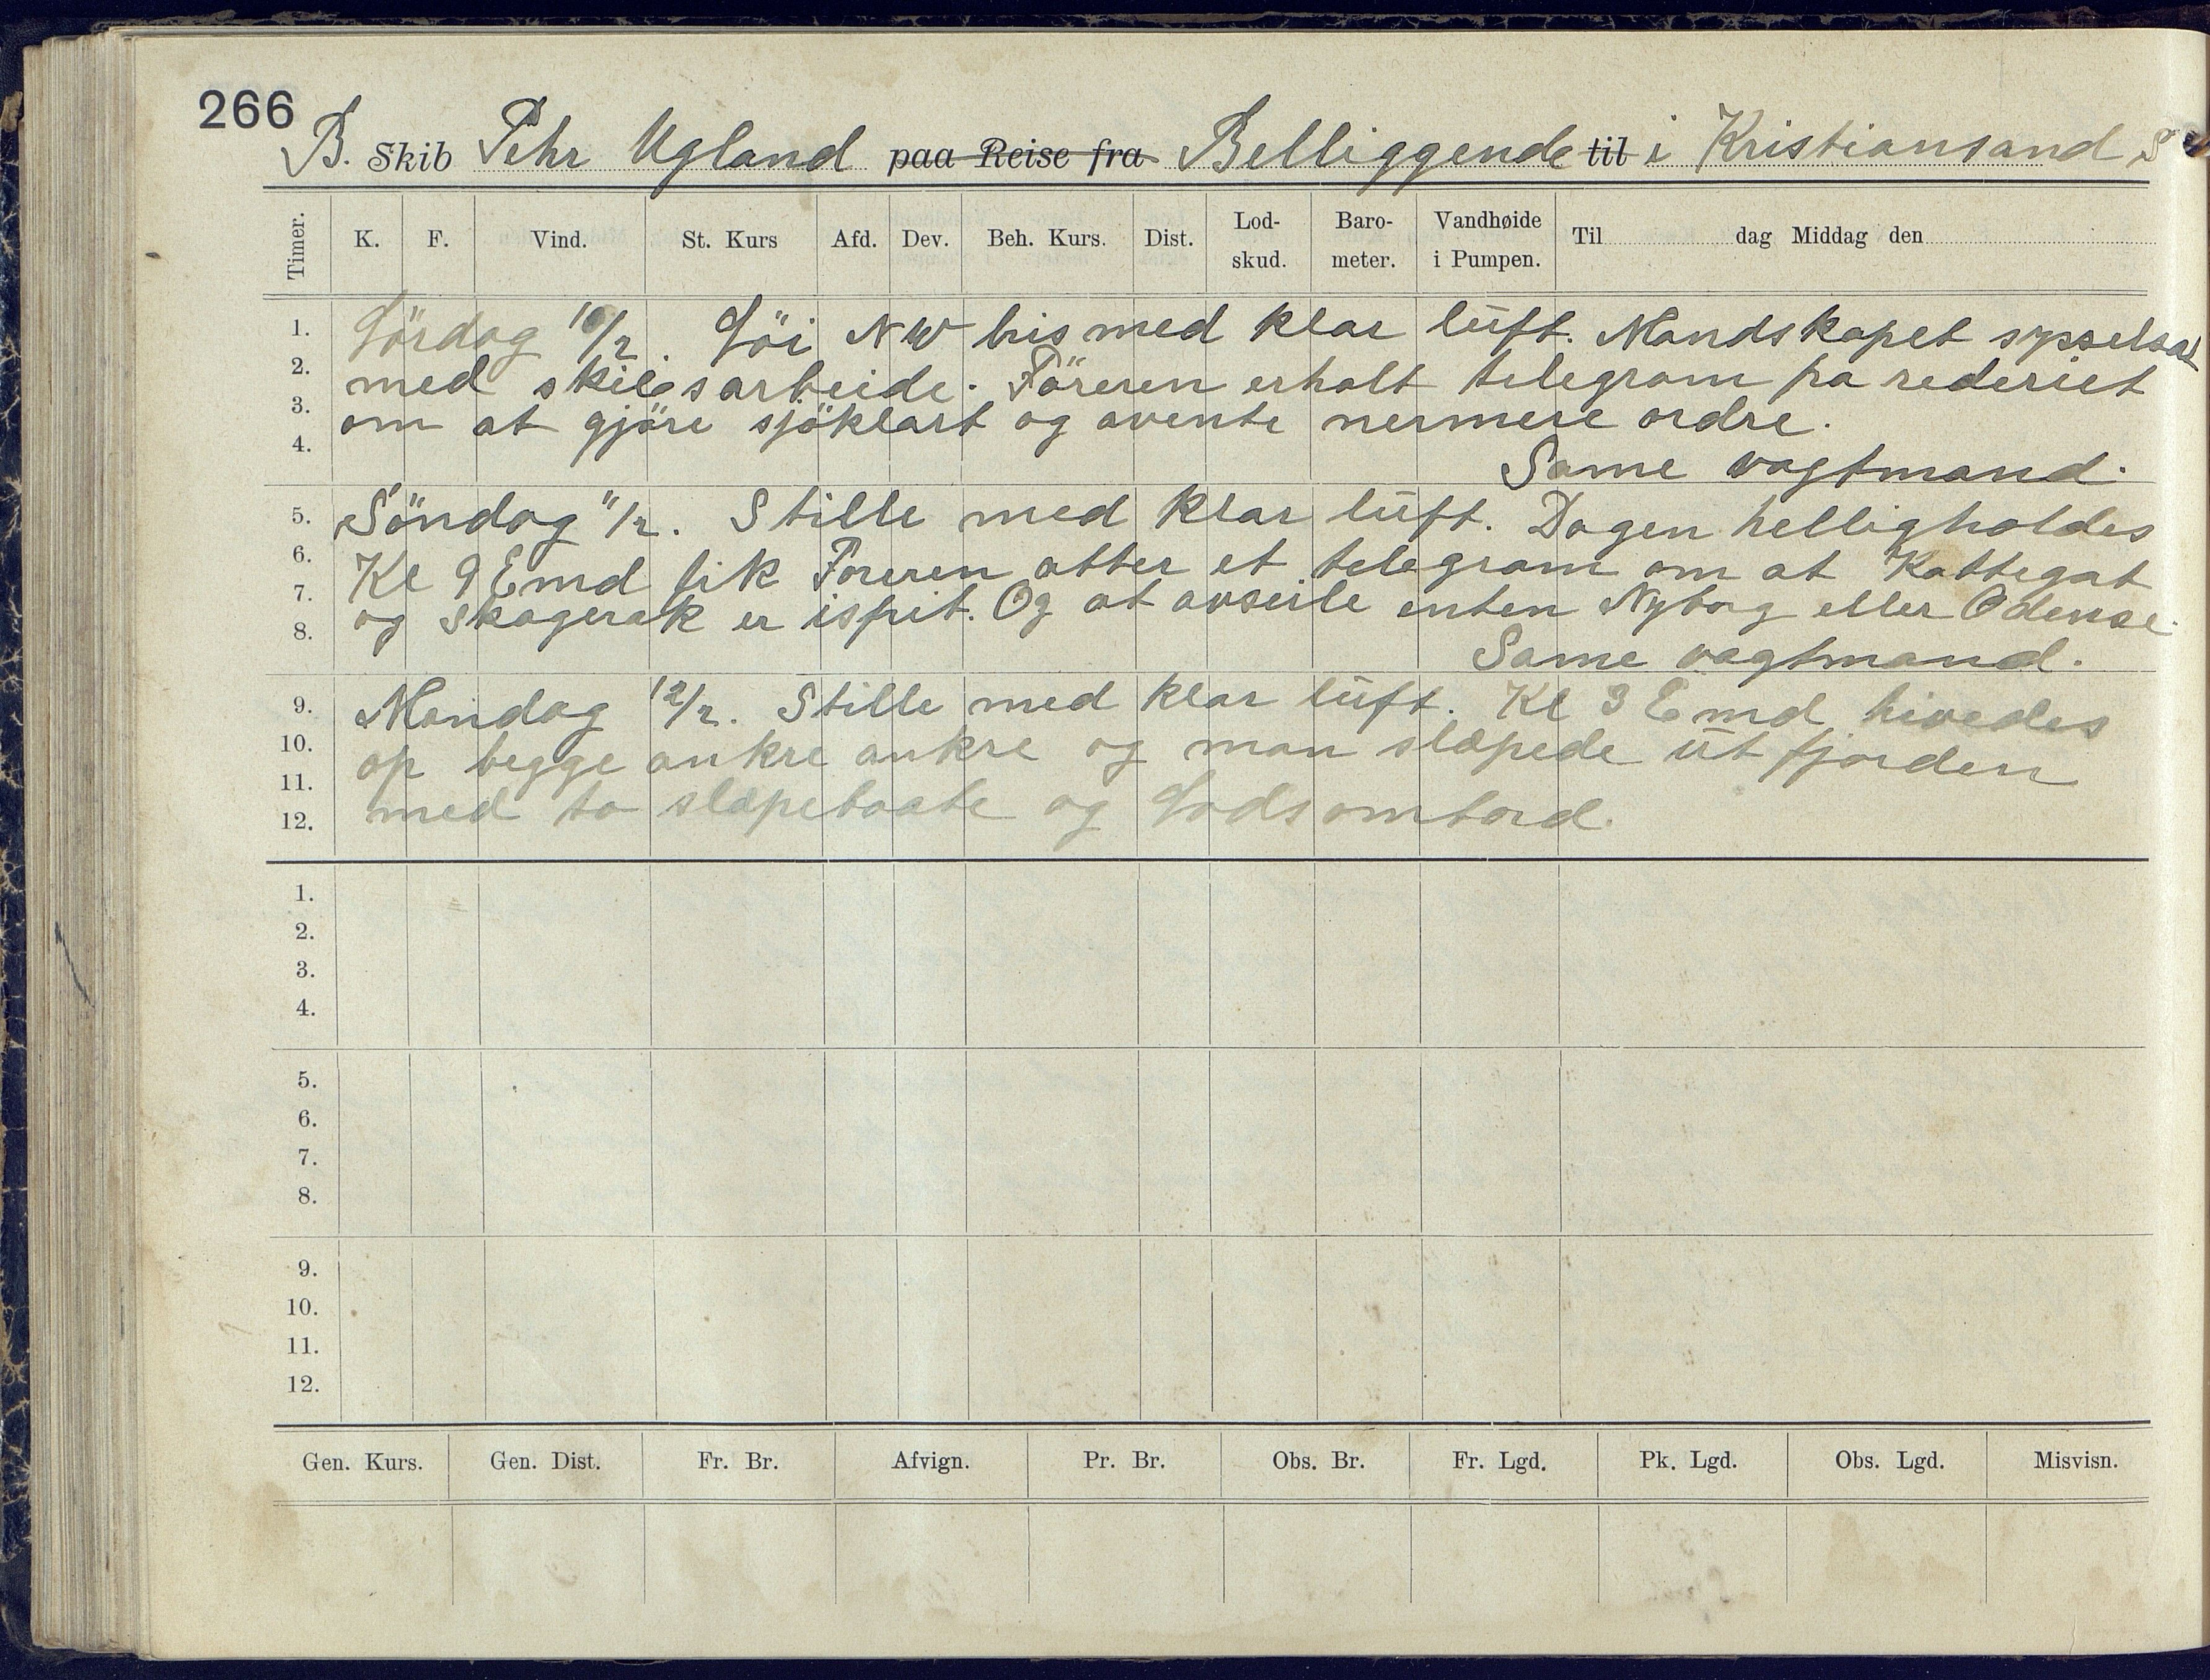 266
B. Skib Pehr Ugland paa Reise fra Beliggende til i Kristiansand S
Timer. K. F. Vind. St. Kurs Afd. Dev. Beh. Kurs. Dist. Lod-skud. Baro-meter. Vandhøide i Pumpen. Til dag Middag den
1. Lördag 10/2. Löi NW bris med klar luft. Mandskapet sysselsat
2. med skibsarbeide. Föreren erholt telegram fra rederiet
3. om at gjöre sjöklart og avente nermere ordre.
4. Same vagtmand.
5. Söndag 11/2. Stille med klar luft. Dagen helligholdes
6. Kl 9 Emd fik Föreren atter et telegram om at Kattegat
7. og Skagerak er isfrit. Og at avseile enten Nyborg eller Odense.
8. Same vagtmand.
9. Mandag 12/2. Stille med klar luft. Kl 3 Emd hivedes
10. op begge ankre ankre og man slæpede ut fjorden
11. med to slæpebaate og Lods ombord.
12.
1.
2.
3.
4.
5.
6.
7.
8.
9.
10.
11.
12.
Gen. Kurs. Gen. Dist. Fr. Br. Afvign. Pr. Br. Obs. Br. Fr. Lgd. Pk. Lgd. Obs. Lgd. Misvisn.